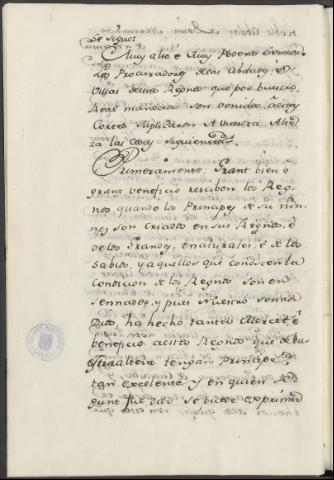 se sigue:
Muy alto e Muy Poderoso
Los Procuradores delas cibdades, é
Villas destos Regnos que por buestro
Real mandado son venidos á estas
Cortes suplicaron á Vuestra Alte-
za las cosas siguientes:
Primeramente, Grant bien é
grant beneficio resciben los Reg-
nos quando los Principes de su ni-
nes son criados en sus Regnos, é
de los Grandes, é naturales, é de los
sabios, y aquellos que conoscen la
condicion de los Regnos son en
sennados, y pues Nuestro Sennor
Dios, ha hecho tanta Merced, é
beneficio á estos Regnos que de bu-
estra alteza tengan Principe
tan excelente y en quien se-
gunt fue dad se puede exprimir